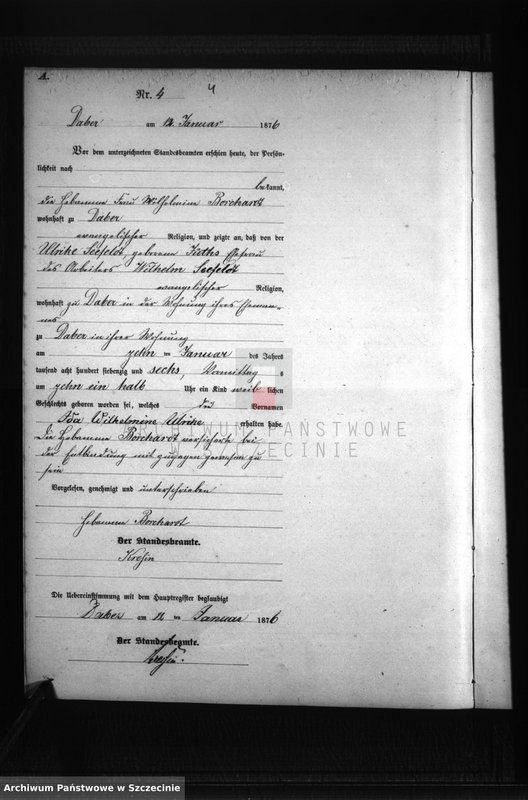 A.
Nr. 4
4
Daber am 12. Januar 1876
Vor dem unterzeichneten Standesbeamten erschien heute, der Persön-
lichkeit nach
bekannt,
die Hebamme Frau Wilhelmine Borchardt
wohnhaft zu Daber
evangelischer Religion, und zeigte an, daß von der
Ulrike Seefeldt, geborenen Ehefrau
des Arbeiters Wilhelm Seefeldt
evangelischer Religion,
wohnhaft zu Daber in der Wohnung ihres Eheman-
nes
zu Daber in ihrer Wohnung
am zehn ten Januar des Jahres
tausend acht hundert siebenzig und sechs, Vormittag s
um zehn ein halb Uhr ein Kind weib lichen
Geschlechts geboren worden sei, welches die Vornamen
Ida Wilhelmine Ulrike erhalten habe.
Die Hebamme Borchardt versicherte bei
der Entbindung mit zugegen gewesen zu
sein
Vorgelesen, genehmigt und unterschrieben
Hebamme Borchardt
Der Standesbeamte.
Kresin
Die Uebereinstimmung mit dem Hauptregister beglaubigt
Daber am 12 ten Januar 1876
Der Standesbeamte.
Kresin.
ARCHIWUM PAŃSTWOWE
W SZCZECINIE
Archiwum Państwowe w Szczecinie